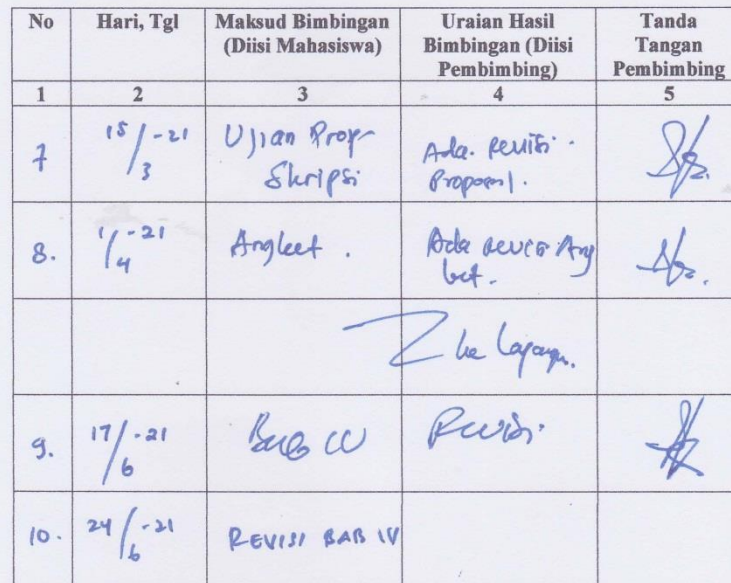 No Hari, Tgl Maksud Bimbingan (Diisi Mahasiswa) Uraian Hasil Bimbingan (Diisi Pembimbing) Tanda Tangan Pembimbing
1 2 3 4 5
7 15/3-21 Ujian Prop Skripsi Ada revisi Proposal.
8. 1/4-21 Angket. Ada revisi Angket.
ke lapangan.
9. 17/6-21 Bab IV Revisi
10. 24/6-21 REVISI BAB IV